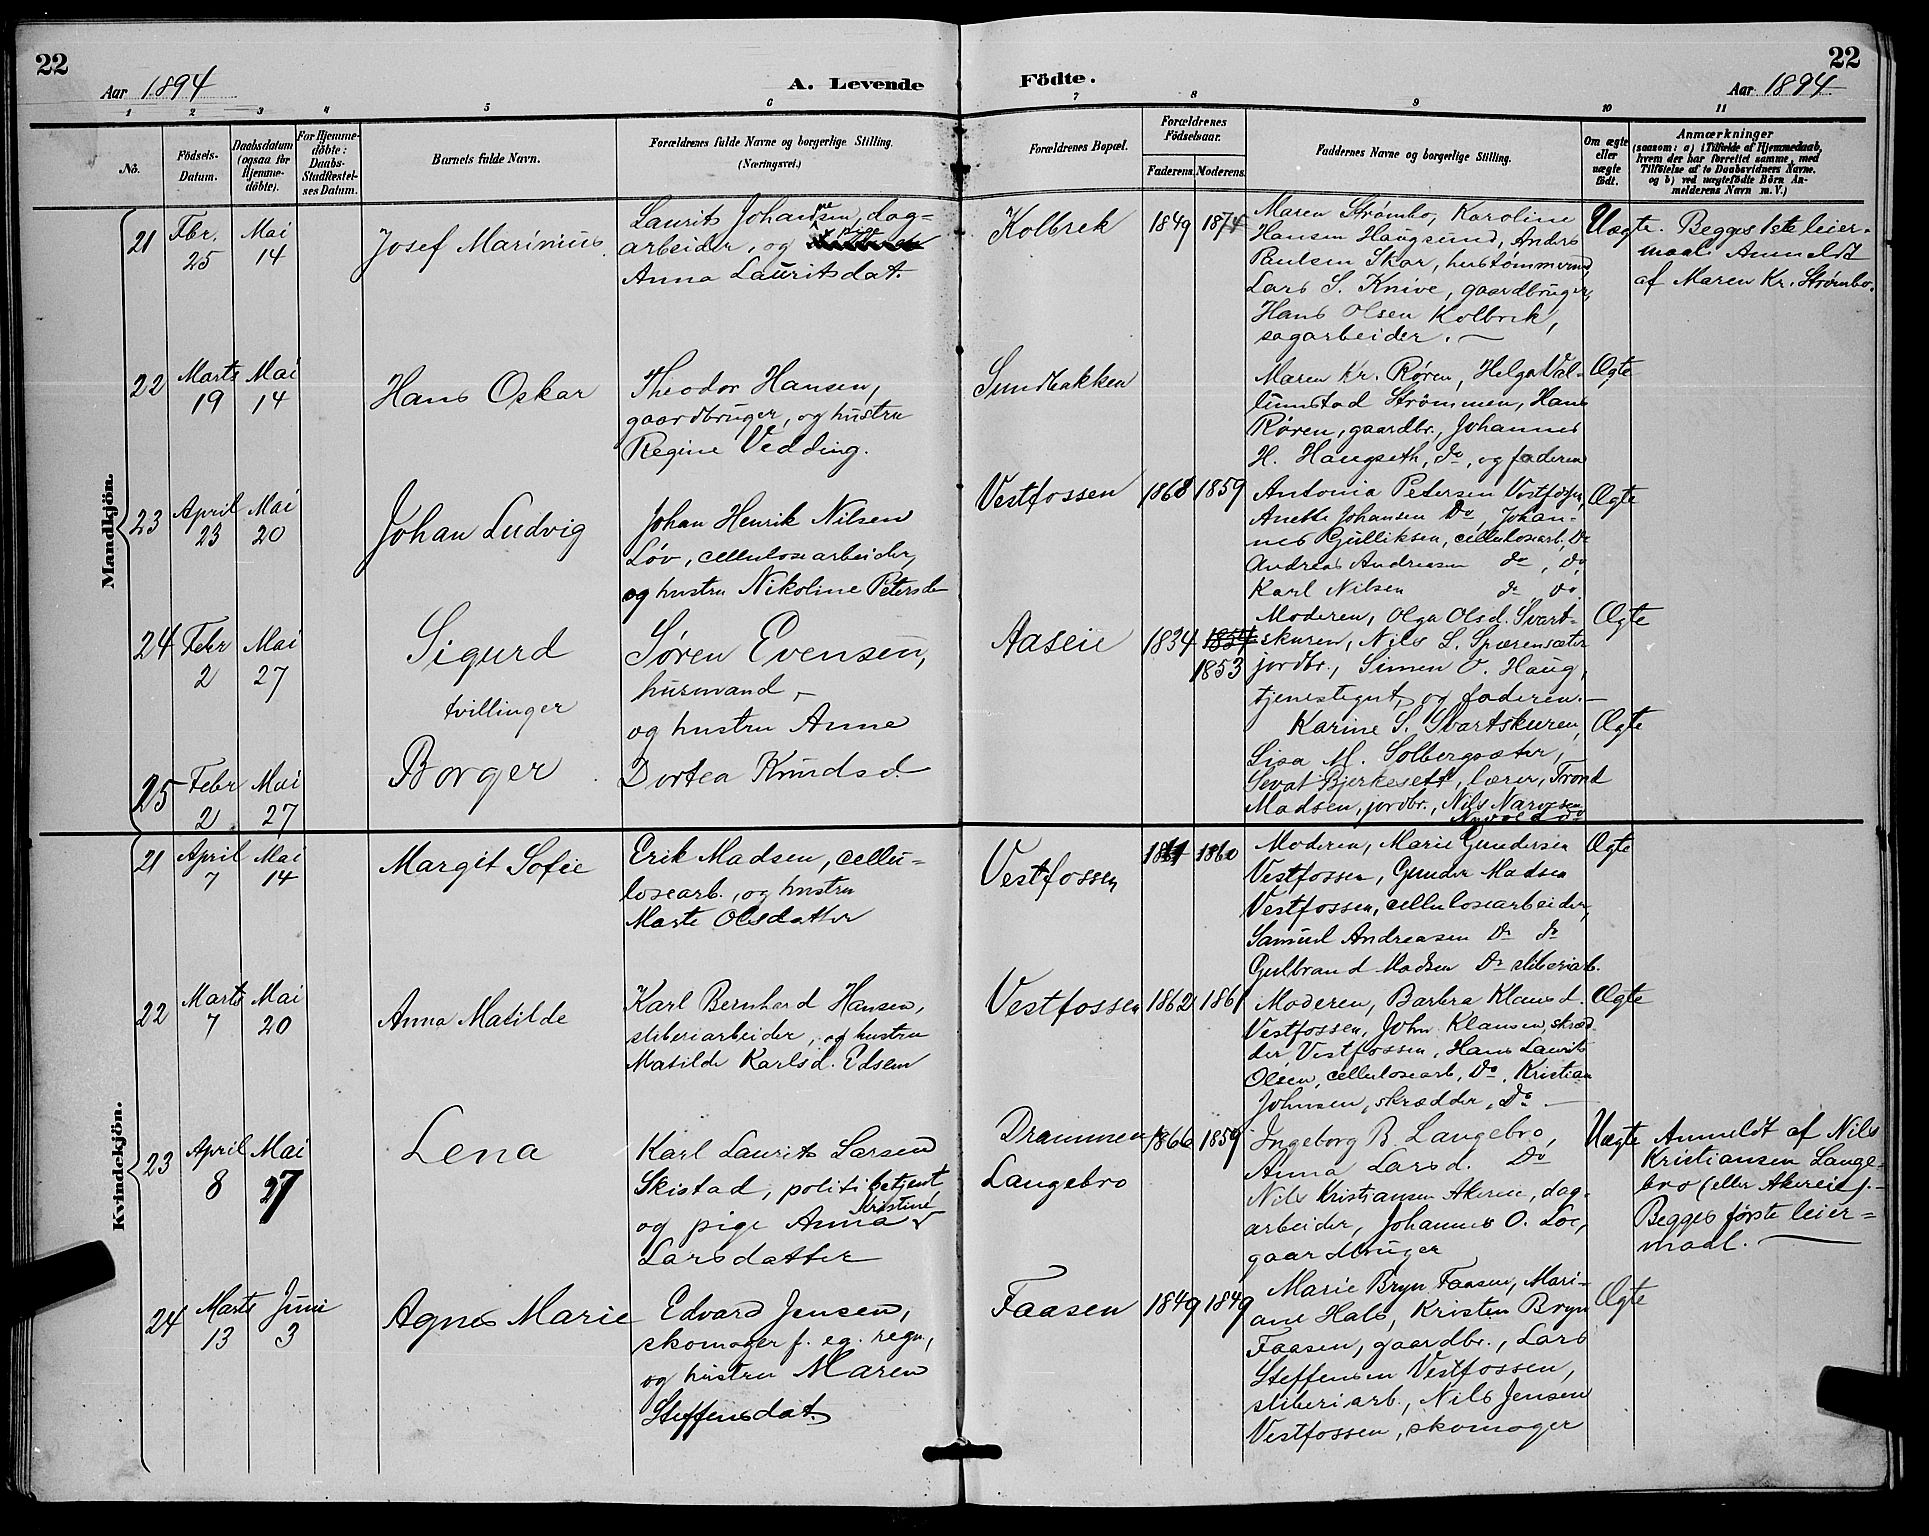 22
Aar 1894
A. Levende
Födte.
22
Aar 1894
1 2 3 4 5 6 7 8 9 10 11
No.
Födsels-Datum.
Daabsdatum (ogsaa for Hjemme-döbte).
For Hjemme-döbte: Daabs-Stadfæstel-ses Datum.
Barnets fulde Navn.
Forældrenes fulde Navne og borgerlige Stilling.
(Næringsvei.)
Forældrenes Bopæl.
Forældrenes Födselsaar.
Faderens. Moderens.
Faddernes Navne og borgerlige Stilling.
Om ægte eller uægte födt.
Anmærkninger
(saasom: a) i Tilfælde af Hjemmedaab,
hvem der har forrettet samme, med
Tilföielse af to Daabsvidners Navne.
og b) ved uægtefödte Börn An-
melderens Navn m. V.)
Mandkjön.
21 Fbr. 25 Mai 14
Josef Marinius.
Laurits Johansen, dag-
arbeider, og pige
Anna Lauritsdat.
Kolbrek 1849 1874
Maren Strømbo, Karoline
Hansen Haugsund, Anders
Paulsen Skar, hustømmermd
Lars S. Knive, gaardbruger,
Hans Olsen Kolbrek,
sagarbeider.
Uægte. Begges 1ste leier-
maal. Anmeldt
af Maren Kr. Strømbo.
22 Marts 19 Mai 14
Hans Oskar
Theodor Hansen,
gaardbruger, og hustru
Regine Vedding.
Sundbakken
Maren Kr. Røren, Helga Val-
lumstad Strømmen, Hans
Røren, gaardbr., Johannes
H. Haugseth, do, og faderen
Ægte
23 April 23 Mai 20
Johan Ludvig
Johan Henrik Nilsen
Løv, cellulosearbeider,
og hustru Nikoline Petersd.
Vestfossen 1868 1859
Antonia Petersen Vestfossen,
Anette Johansen Do, Johan-
nes Gulliksen, cellulosearb. Do
Andreas Andreasen do, do
Karl Nilsen do do.
Ægte
24 Febr 2 Mai 27
Sigurd
tvillinger
Søren Evensen,
husmand,
og hustru Anne
Dortea Knudsd.
Aaseie 1834 1854
1853
Moderen, Olga Olsd. Svart-
skuren, Nils L. Spærensæter
jordbr., Simen O. Haug,
tjenestegut, og faderen.
Ægte
25 Febr 2 Mai 27
Borger
Karine S. Svartskuren,
Lisa M. Solbergsæter,
Sevat Bjerkesett, lærer, Trond
Madsen, jordbr., Nils Narvesen
Nyvold do
Ægte
Kvindekjön.
21 April 7 Mai 14
Margit Sofie
Erik Madsen, cellu-
losearb., og hustru
Marte Olsdatter
Vestfossen 1861 1860
Moderen, Marie Gundersen
Vestfossen, Gunder Madsen
Vestfossen, cellulosearbeider,
Samuel Andreasen Do do
Gulbrand Madsen Do sliberiarb.
Ægte
22 Marts 7 Mai 20
Anna Matilde
Karl Bernhard Hansen,
sliberiarbeider, og hustru
Matilde Karlsd. Edsem
Vestfossen 1862 1861
Moderen, Barbra Klausd.
Vestfossen, John Klausen, skræd-
der, Vestfossen, Hans Laurits
Olsen, cellulosearb, Do, Kristian
Johnsen, skrædder, Do
Ægte
23 April 8 Mai 27
Lena
Karl Laurits Larsen
Skistad, politibetjent
og pige Anna Kristine
Larsdatter
Drammen 1866 1859
Langebro
Ingeborg B. Langebro,
Anna Larsd. Do
Nils Kristiansen Akereie, dag-
arbeider, Johannes O. Loe,
gaardbruger
Uægte Anmeldt af Nils
Kristiansen Lange-
bro (eller Akereie).
Begges første leier-
maal.
24 Marts 13 Juni 3
Agnes Marie
Edvard Jensen,
skomager f. eg. regn,
og hustru Maren
Steffensdat.
Faasen 1849 1849
Marie Bryn Faasen, Mari-
ane Hals, Kristen Bryn
Faasen, gaardbr., Lars
Steffensen Vestfossen,
sliberiarb., Nils Jensen
Vestfossen, skomager
Ægte